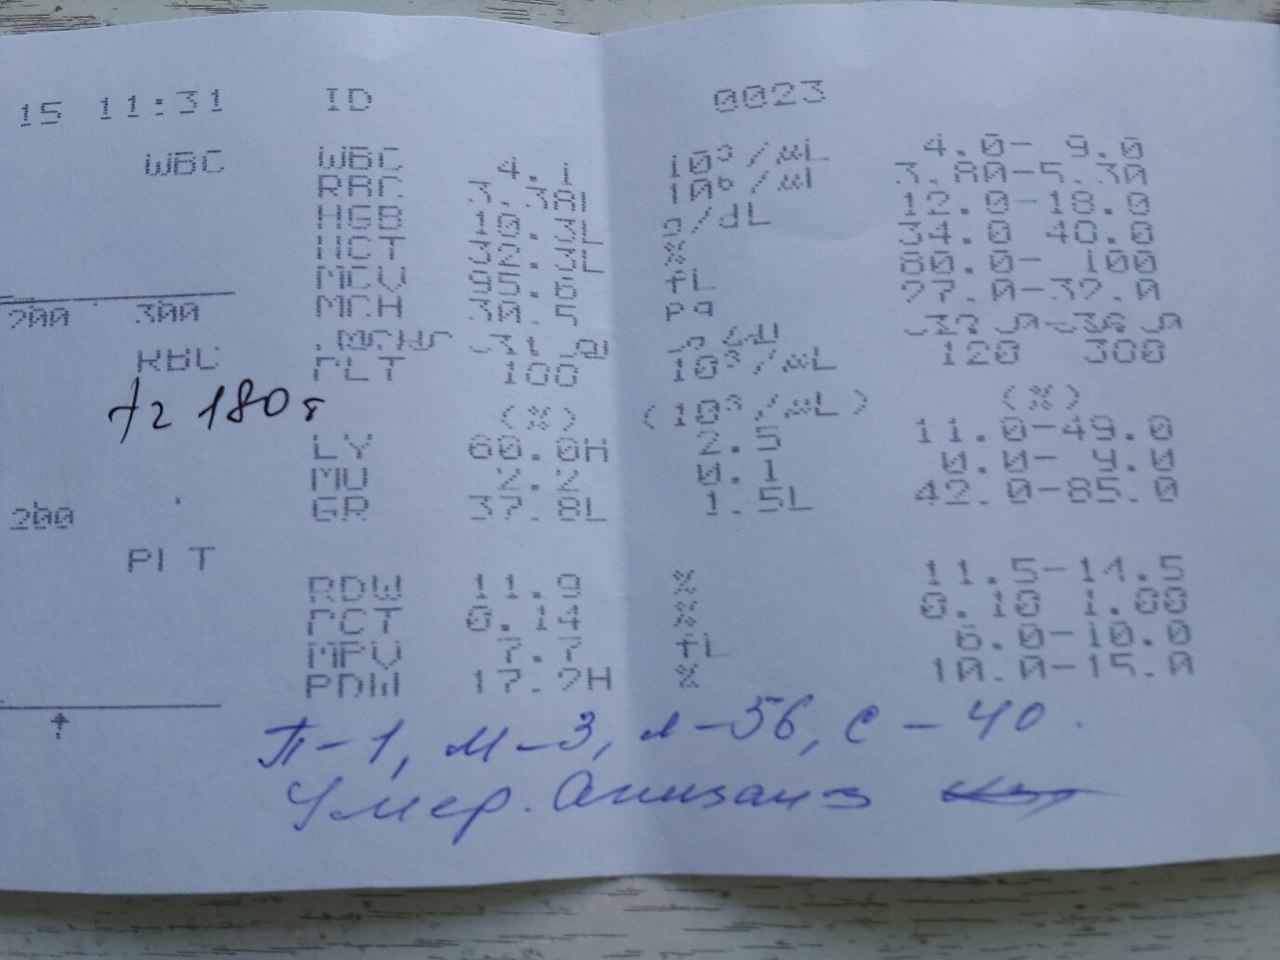 15 11:31 ID 0023
WBC WBC 4.1 10³/µL 4.0- 9.0
RBC 3.38L 10⁶/µl 3.80-5.30
HGB 10.3L g/dL 12.0-18.0
HCT 32.3L % 34.0 48.0
MCV 95.6 fL 80.0- 100
MCH 30.5 pg 27.0-32.0
200 300
MCHC 31.9 g/dl 32.0-36.0
RBC PLT 180 10³/µL 120 300
180
(%) (10³/µL) (%)
LY 60.0H 2.5 11.0-49.0
MO 2.2 0.1 0.0- 9.0
GR 37.8L 1.5L 42.0-85.0
200
PLT
RDW 11.9 % 11.5-14.5
PCT 0.14 % 0.10 1.00
MPV 7.7 fL 6.0-10.0
PDW 17.7H % 10.0-15.0
П-1, м-3, л-56, с-40.
Умер. Анизоцитоз